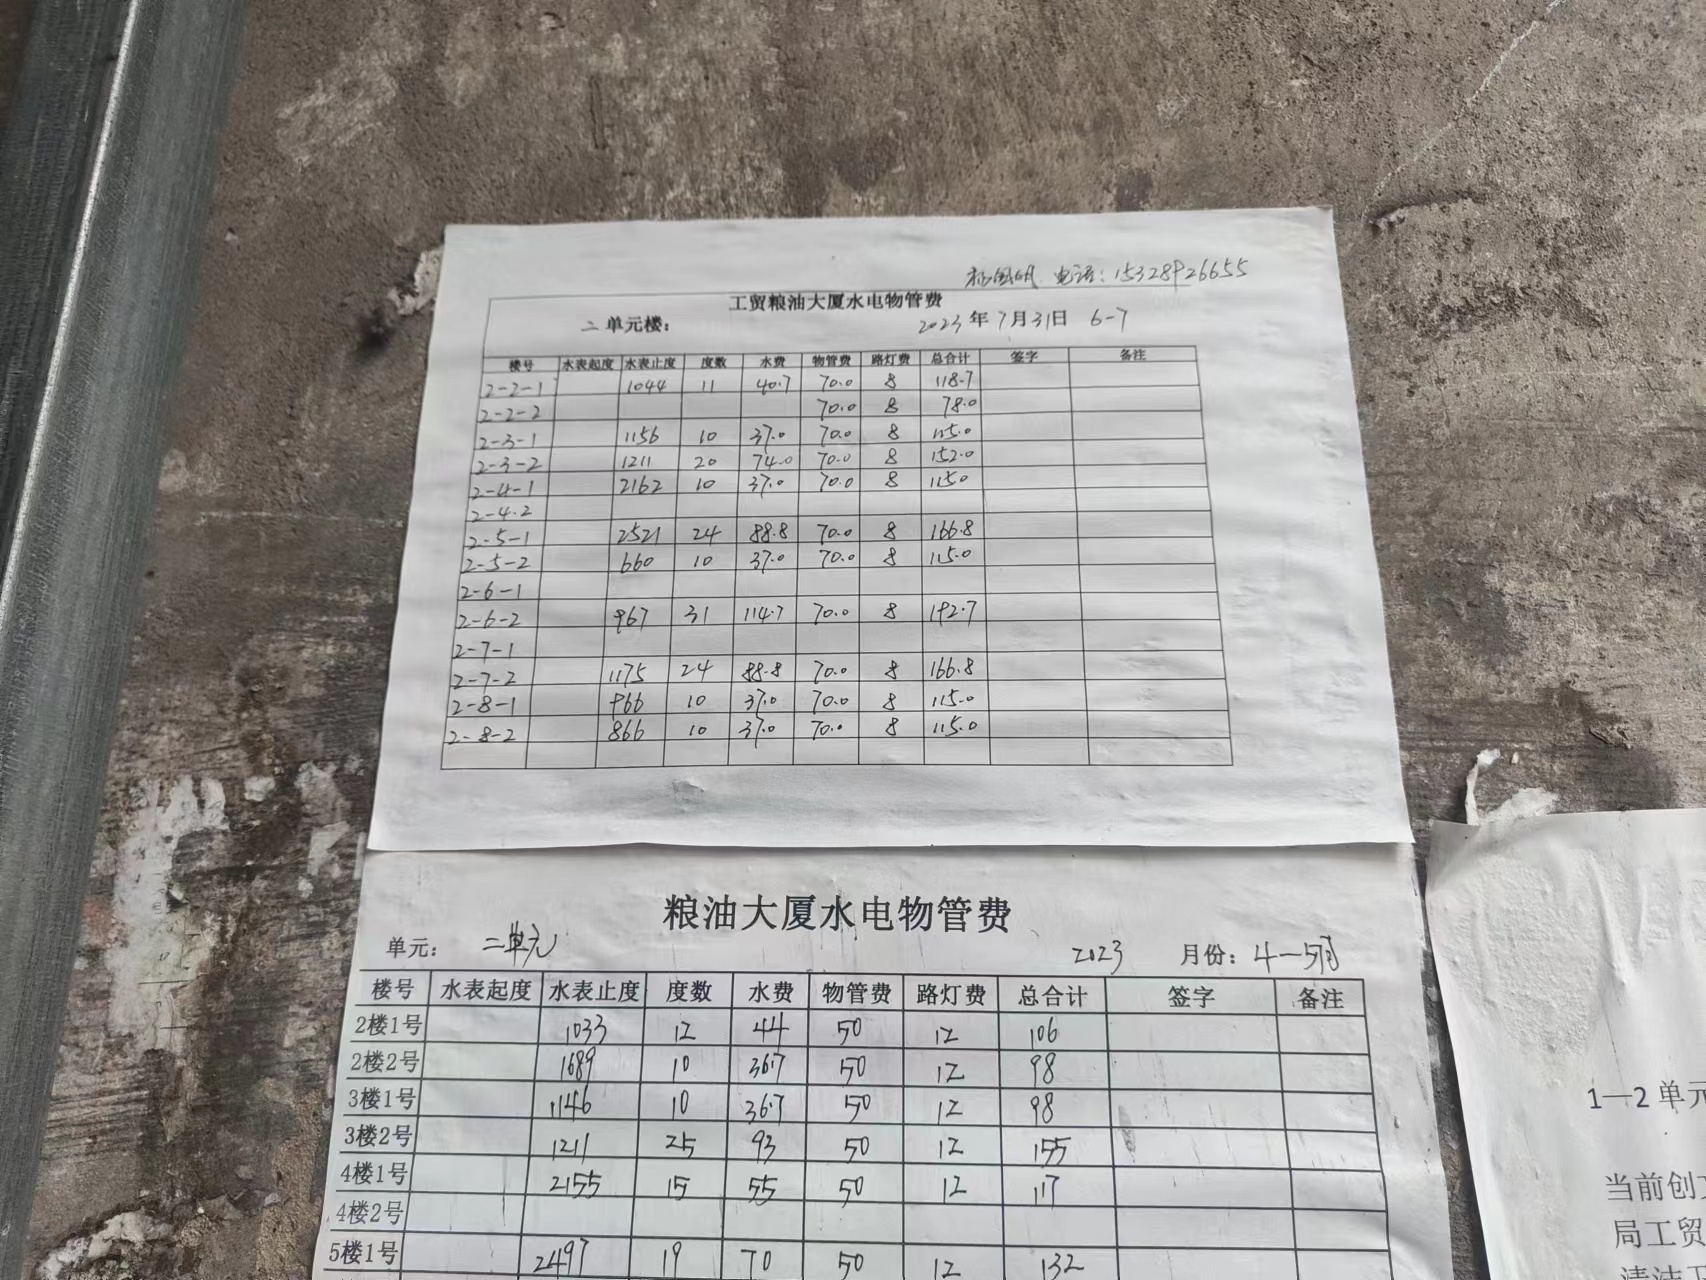 电话：15328926655
工贸粮油大厦水电物管费
二单元楼： 2023年7月31日 6-7
楼号 水表起度 水表止度 度数 水费 物管费 路灯费 总合计 签字 备注
2-2-1 1044 11 40.7 70.0 8 118.7
2-2-2 70.0 8 78.0
2-3-1 1156 10 37.0 70.0 8 115.0
2-3-2 1211 20 74.0 70.0 8 152.0
2-4-1 2162 10 37.0 70.0 8 115.0
2-4.2
2-5-1 2521 24 88.8 70.0 8 166.8
2-5-2 660 10 37.0 70.0 8 115.0
2-6-1
2-6-2 967 31 114.7 70.0 8 192.7
2-7-1
2-7-2 1175 24 88.8 70.0 8 166.8
2-8-1 966 10 37.0 70.0 8 115.0
2-8-2 866 10 37.0 70.0 8 115.0
粮油大厦水电物管费
单元： 二单元 2023 月份：4—5月
楼号 水表起度 水表止度 度数 水费 物管费 路灯费 总合计 签字 备注
2楼1号 1033 12 44 50 12 106
2楼2号 1689 10 36.7 50 12 98
3楼1号 1146 10 36.7 50 12 98
3楼2号 1211 25 93 50 12 155
4楼1号 2155 15 55 50 12 117
4楼2号
5楼1号 2497 19 70 50 12 132
1—2单元
当前创
局工贸
清洁卫